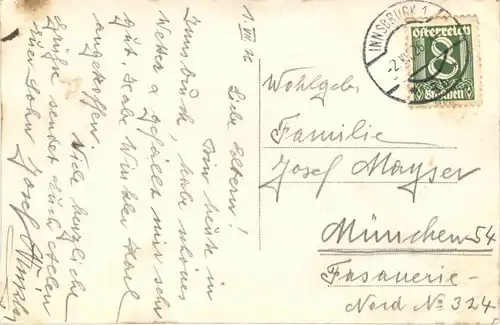 1. VII. 26
Liebe Eltern!
Bin heute in
Innsbruck, habe schönes
Wetter u gefällt mir sehr
gut. Habe Winkler Karl
angetroffen.
Viele herzliche
Grüße sendet Euch allen
Euer Sohn Josef
INNSBRUCK 1
Österreich
8
Groschen
Wohlgeb.
Familie
Josef Mayser
München 54
Fasanerie-
Nord No 324